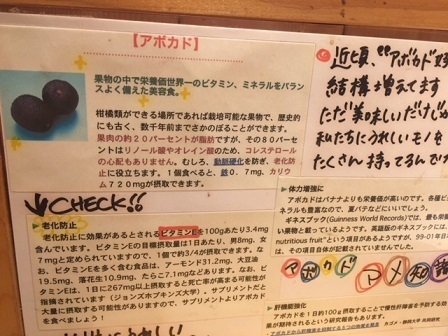 【アボカド】
果物の中で栄養価世界一のビタミン、ミネラルをバランスよく備えた美容食。
柑橘類ができる場所であれば栽培可能な果物で、歴史的にも古く、数千年前までさかのぼることができます。
果肉の約20パーセントが脂肪ですが、その80パーセントはリノール酸やオレイン酸のため、コレステロールの心配もありません。むしろ、動脈硬化を防ぎ、老化防止に役立ちます。1個食べると、鉄0.7mg、カリウム720mgが摂取できます。
CHECK!!
老化防止に
老化防止に効果があるとされるビタミンEを100gあたり3.4mg
含んでいます。ビタミンEの目標摂取量は1日あたり、男8mg、女
7mgと定められていますので、1個で約3/4が摂取できます。な
お、ビタミンEを多く含む食品は、アーモンド31.2mg、大豆油
19.5mg、落花生10.9mg、たらこ7.1mgなどあります。なお、ビ
タミンEは、1日に267mg以上摂取すると死亡率が高まる可能性が
指摘されています（ジョンズホプキンズ大学）。サプリメントだと
大量に摂取する可能性がありますので、サプリメントよりアボカド
を食べましょう！
近頃、"アボカド好
結構増えてます
ただ美味しいだけじ
私たちにうれしいモノを
たくさん持ってるんで
体力増強に
アボカドはバナナよりも栄養価が高いのです。各種ビ
ネラルも豊富なので、夏バテなどにいいでしょう。
ギネスブック(Guinness World Records)では、最も栄
い果物と載っているようです。英語版のギネスブックには、
nutritious fruit」という項目があるようですが、99-01年日
は、その項目自体が記載されていませんでした。
アボカド マメ知
肝機能強化
アボカドを1日約100g摂取することで慢性肝障害を予防する
果が期待されるという研究報告もあります。